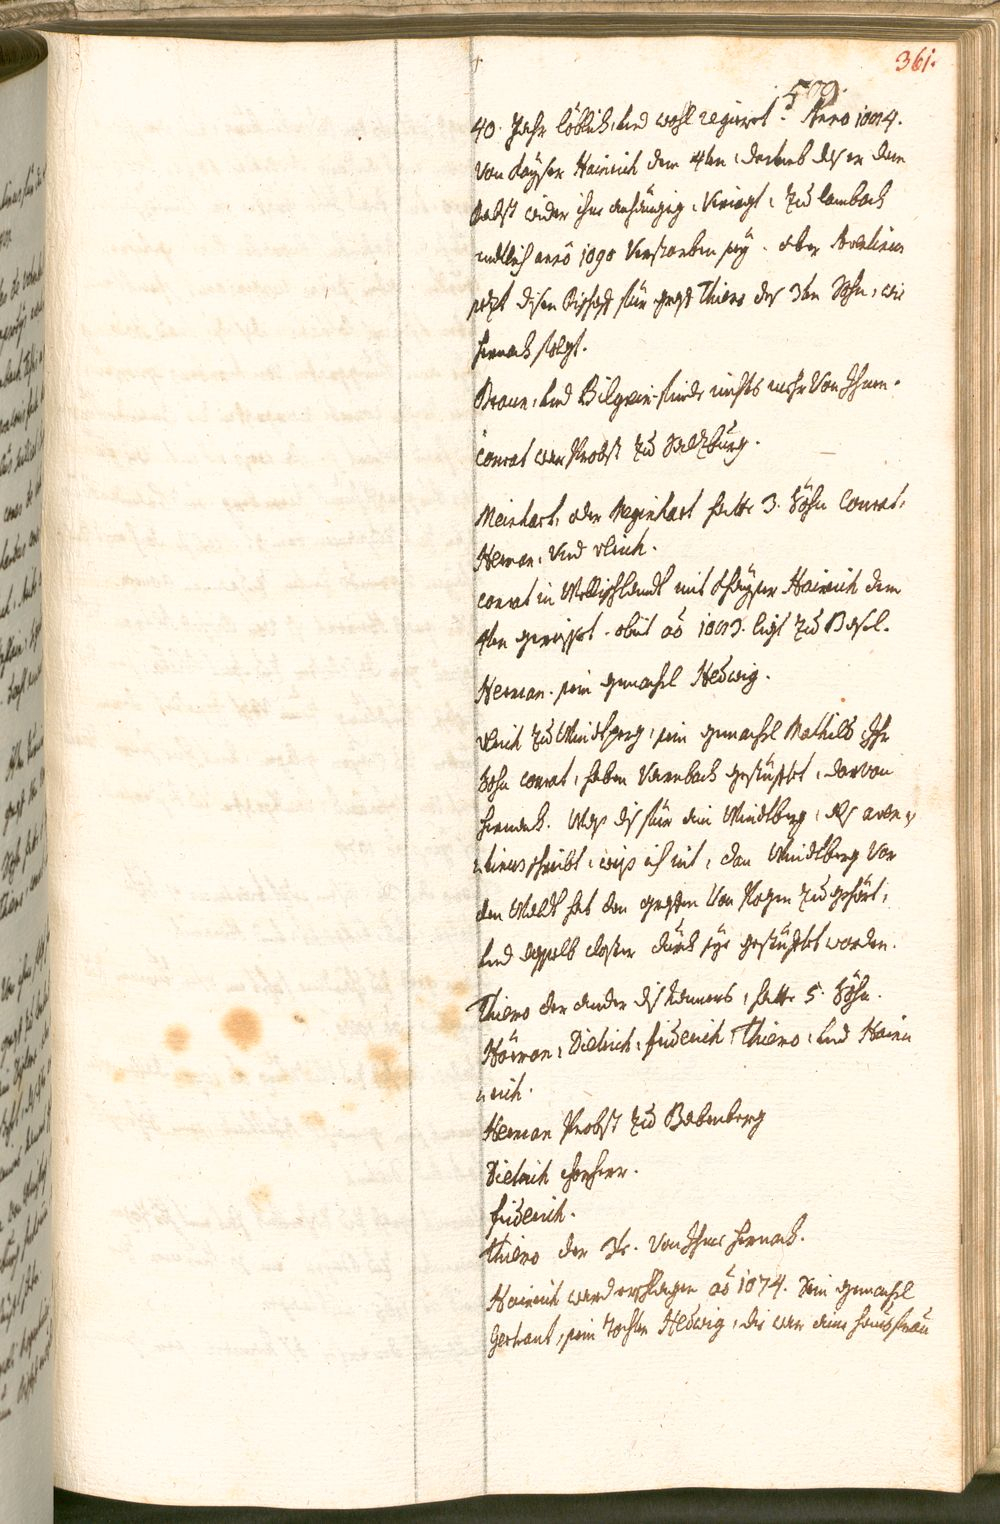 361.
509.
40. Jahr löblich, und wohl regiert. Anno 1004.
Von Kayser Hainrich dem 4ten, darumb das er dem
Pabst wider ihne anhängig, Kriegt, zu Lambach
endlich anno 1090 verstorben sey. aber Aventinus
sezt disen Bischoff für graff Thiero des 3ten Sohn, wie
hernach folgt.
Braun, und Bilgrein finde nichts mehr Von Ihnen.
Conrat war Probst zu Salzburg.
Meinhart, oder Meginhart hatte 3. Söhn Conrat,
Herman, Und Ulrich.
Conrat in Wellischlandt mit Khayser Hainrich dem
4ten geraisst. obiit ao 1003. ligt zu Basel.
Herman. sein gemahel Hedwig.
Ulrich zu Windtberg, sein gemahel Mathild Ihr
Sohn Conrat, haben Varnbach gestüfftet, darvon
hernach. Was dis für ein Windtberg, das aven
tinus schreibt, weis ich nit, dan Windtberg Vor
dem Waldt hat den graffen Von Pogen zu gehört,
und dasselb closter durch sye gestüfftet worden.
Thiero der ander dis Namens, hatte 5. Söhn.
Hörman, Dietrich, Friderich, Thiero, und Hain
rich.
Herman Probst zu Babenberg
Dietrich chorherr.
Friderich.
Thiero der 3te. Von Ihme hernach.
Hainrich ward erschlagen ao 1074. Sein gemahel
Gertraut, sein Tochter Hedwig, die war eine hausfrau